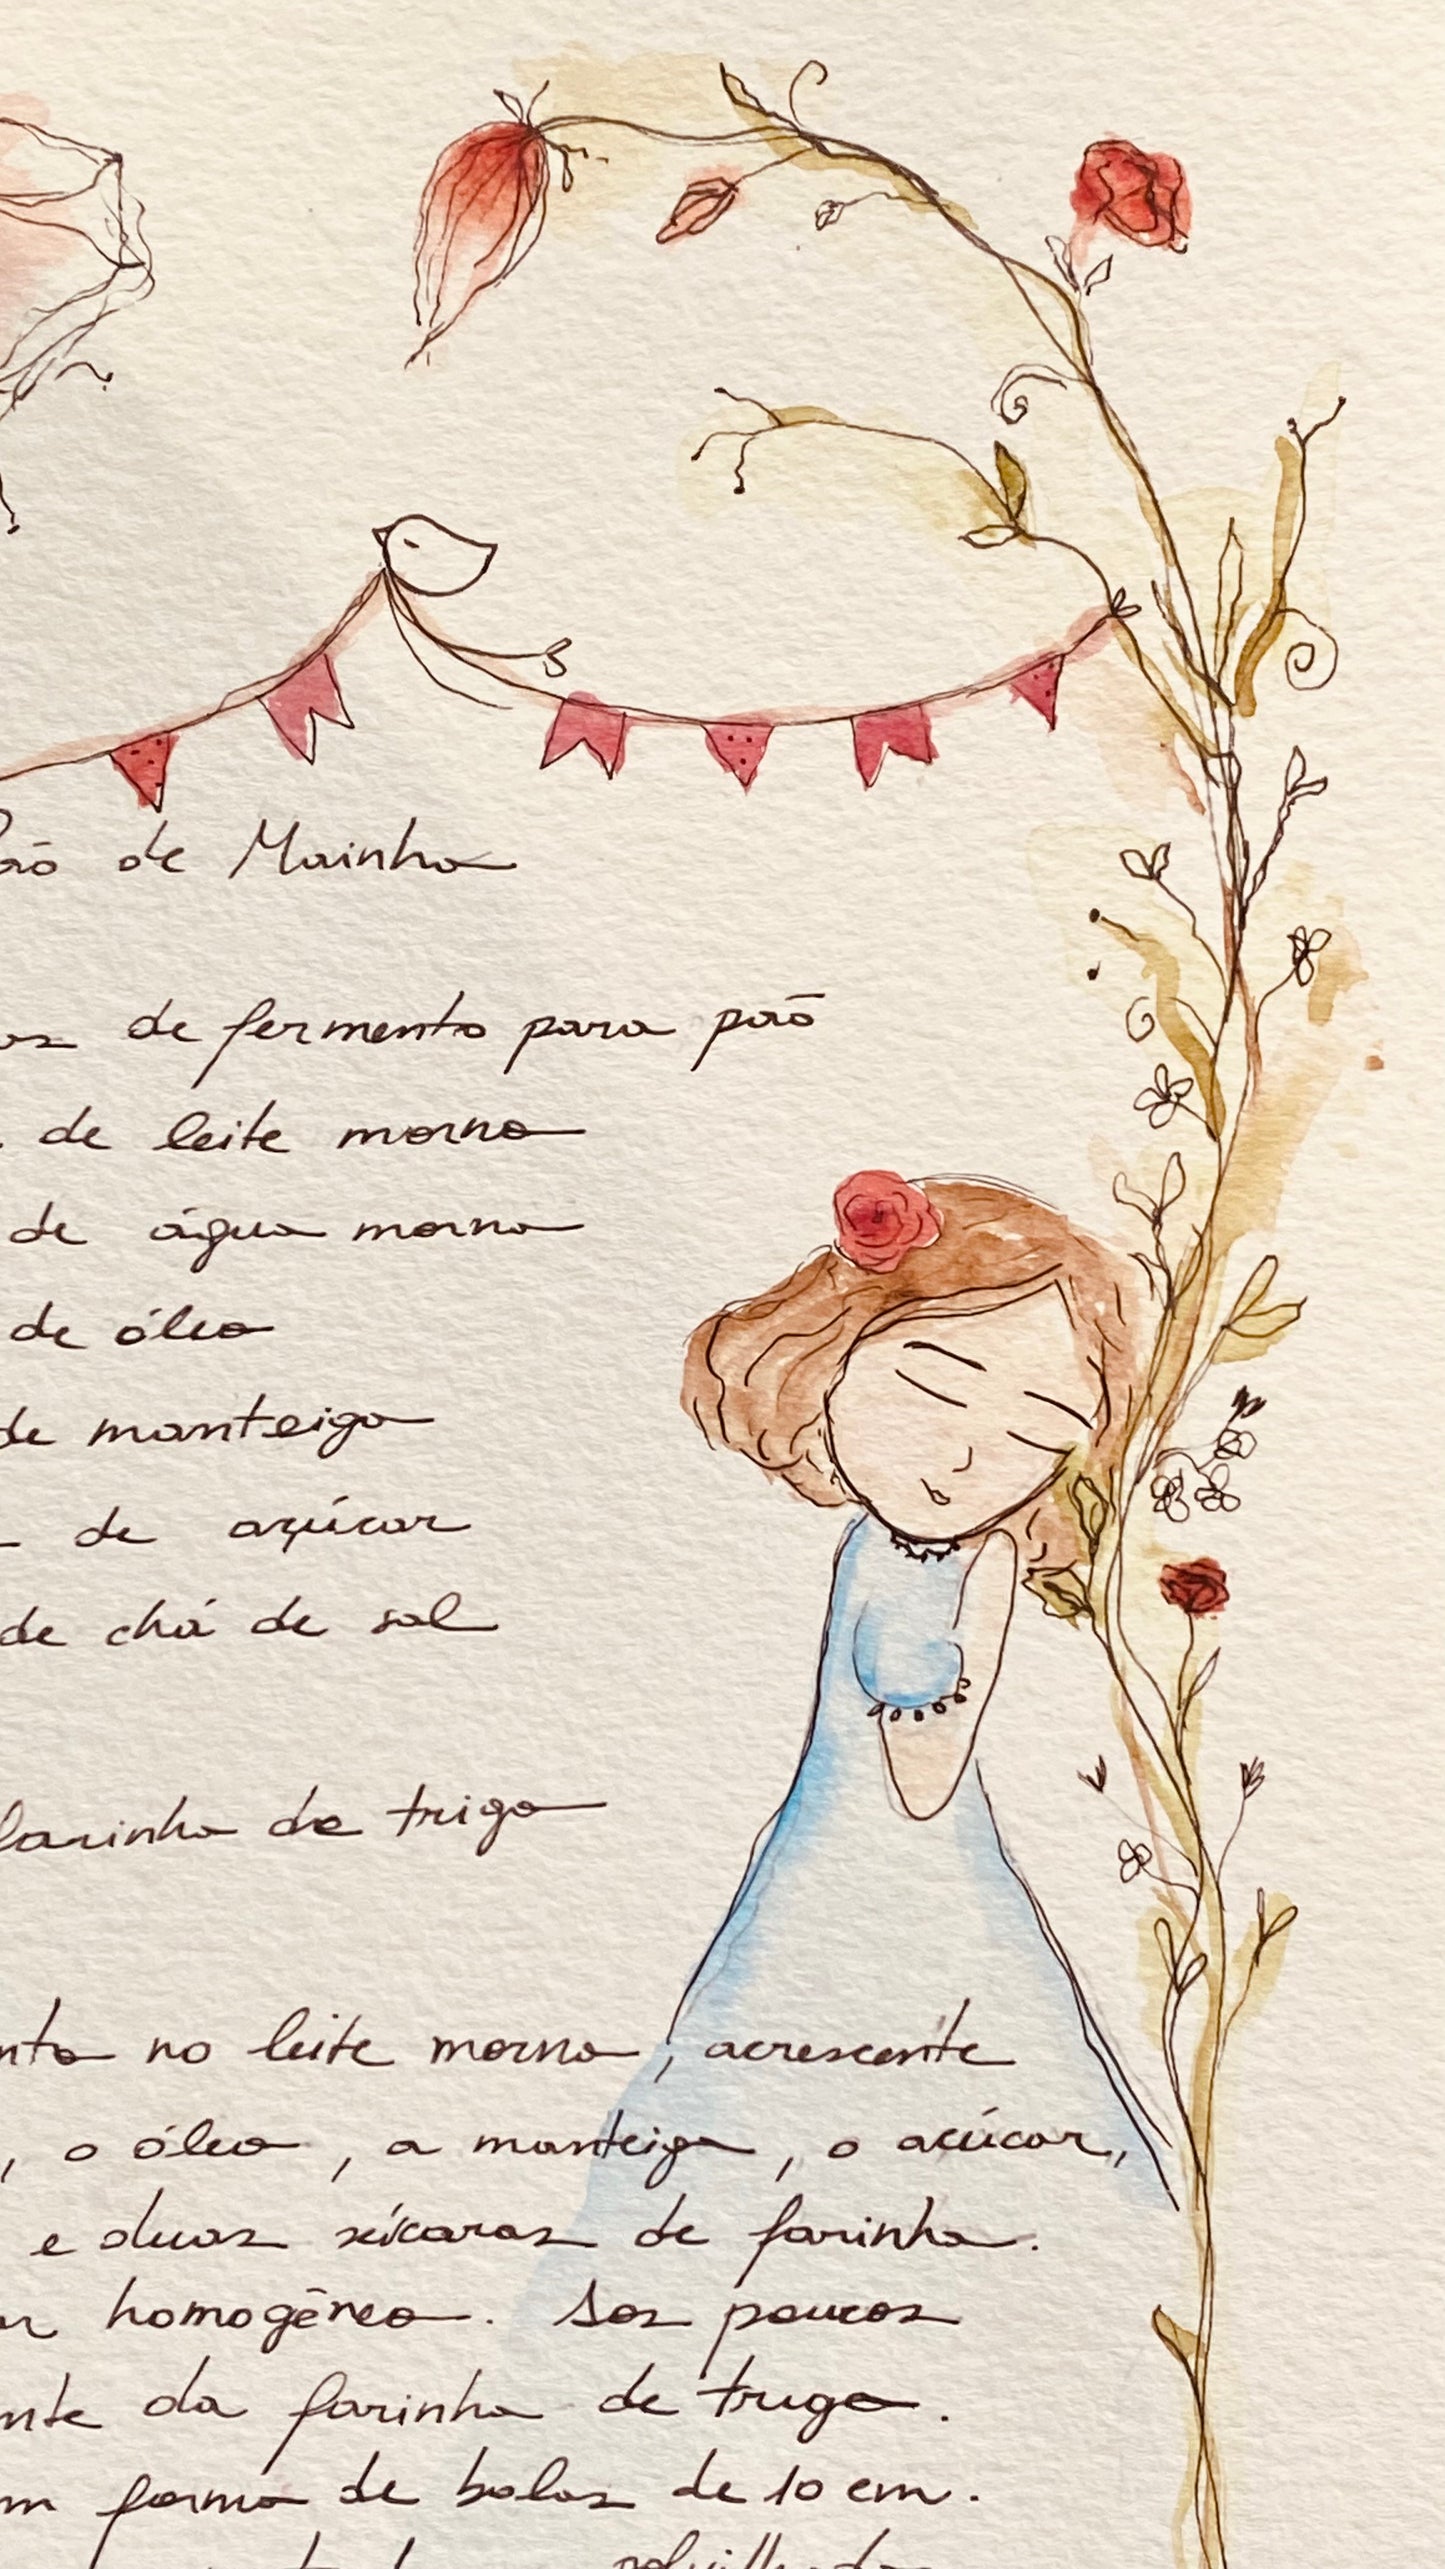 Pão de Mainha
de fermento para pão
de leite morno
de água morna
de óleo
de manteiga
de açúcar
de chá de sal
farinha de trigo
no leite morno, acrescente
, o óleo, a manteiga, o açúcar,
e duas xícaras de farinha.
homogêneo. Aos poucos
da farinha de trigo.
forma de bolas de 10 cm.